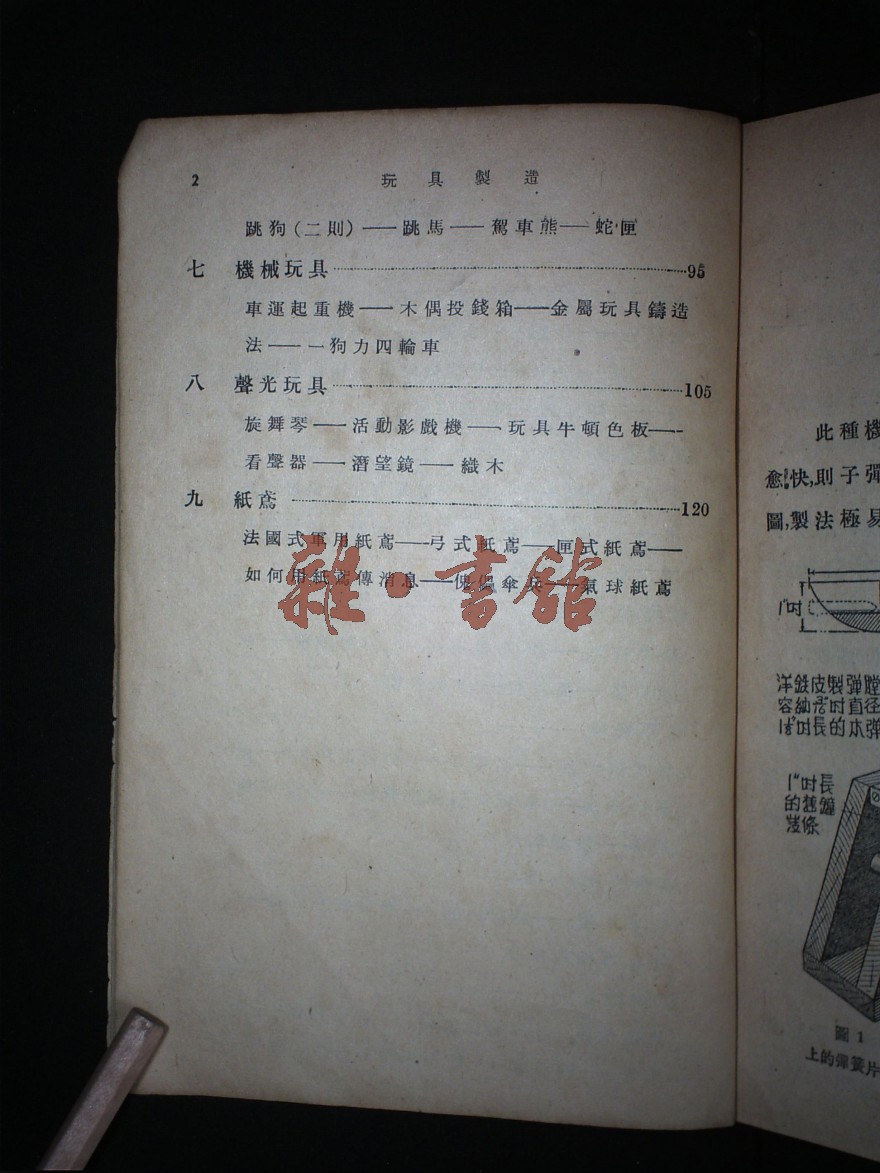 2 玩具製造
跳狗(二則)——跳馬——駕車熊——蛇匣
七 機械玩具……95
車運起重機——木偶投錢箱——金屬玩具鑄造
法——一狗力四輪車
八 聲光玩具……105
旋舞琴——活動影戲機——玩具牛頓色板——
看聲器——潛望鏡——織木
九 紙鳶……120
法國式軍用紙鳶——弓式紙鳶——匣式紙鳶——
如何用紙鳶傳消息——傀儡傘兵——氣球紙鳶
雜·書館
此種機
愈快,則子彈
圖,製法極易
1"吋
洋鉄皮製弹膛
容納 吋直径
吋長的木弹
1"吋長
的舊鐘
發條
圖 1
上的彈簧片